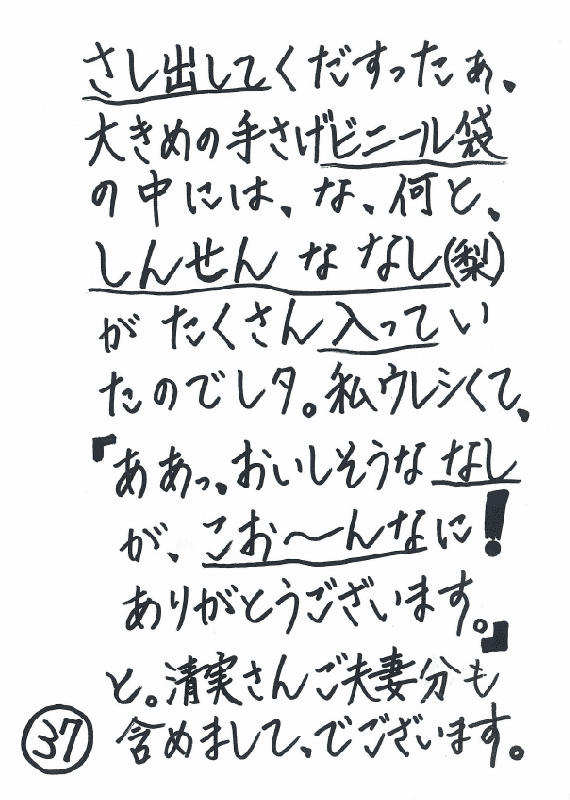 さし出してくだすったぁ、
大きめの手さげビニール袋
の中には、な、何と、
しんせん な なし(梨)
が たくさん入ってい
たのでしタ。私ウレシくて、
『ああっ、おいしそうな なし
が、こお〜んなに!
ありがとうございます。』
と。清実さんご夫妻分も
含めまして、でございます。
37